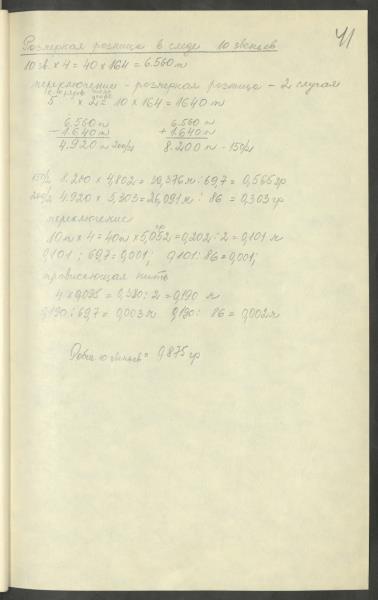 41
Размерная разница в следе 10 звеньев
10 зв. × 4 = 40 × 164 = 6.560 м
переключение - размерная разница - 2 случая
5 × 2 = 10 × 164 = 1640 м
6.560 м 6.560 м
- 1.640 м + 1.640 м
4.920 м 200/2 8.200 м - 150/2
150/2 = 39,376 м : 69,7 = 0,565 гр
200/2 4.920 × 5,303 = 26,091 м : 86 = 0,303 гр
переключение
10 м × 4 = 40 м × 5,052 = 0,202 : 2 = 0,101 м
0,101 : 69,7 = 0,001; 0,101 : 86 = 0,001;
провисающая нить
4 × 0,095 = 0,380 : 2 = 0,190 м
0,190 : 69,7 = 0,003 м 0,190 : 86 = 0,002 м
10 звеньев = 0,875 гр